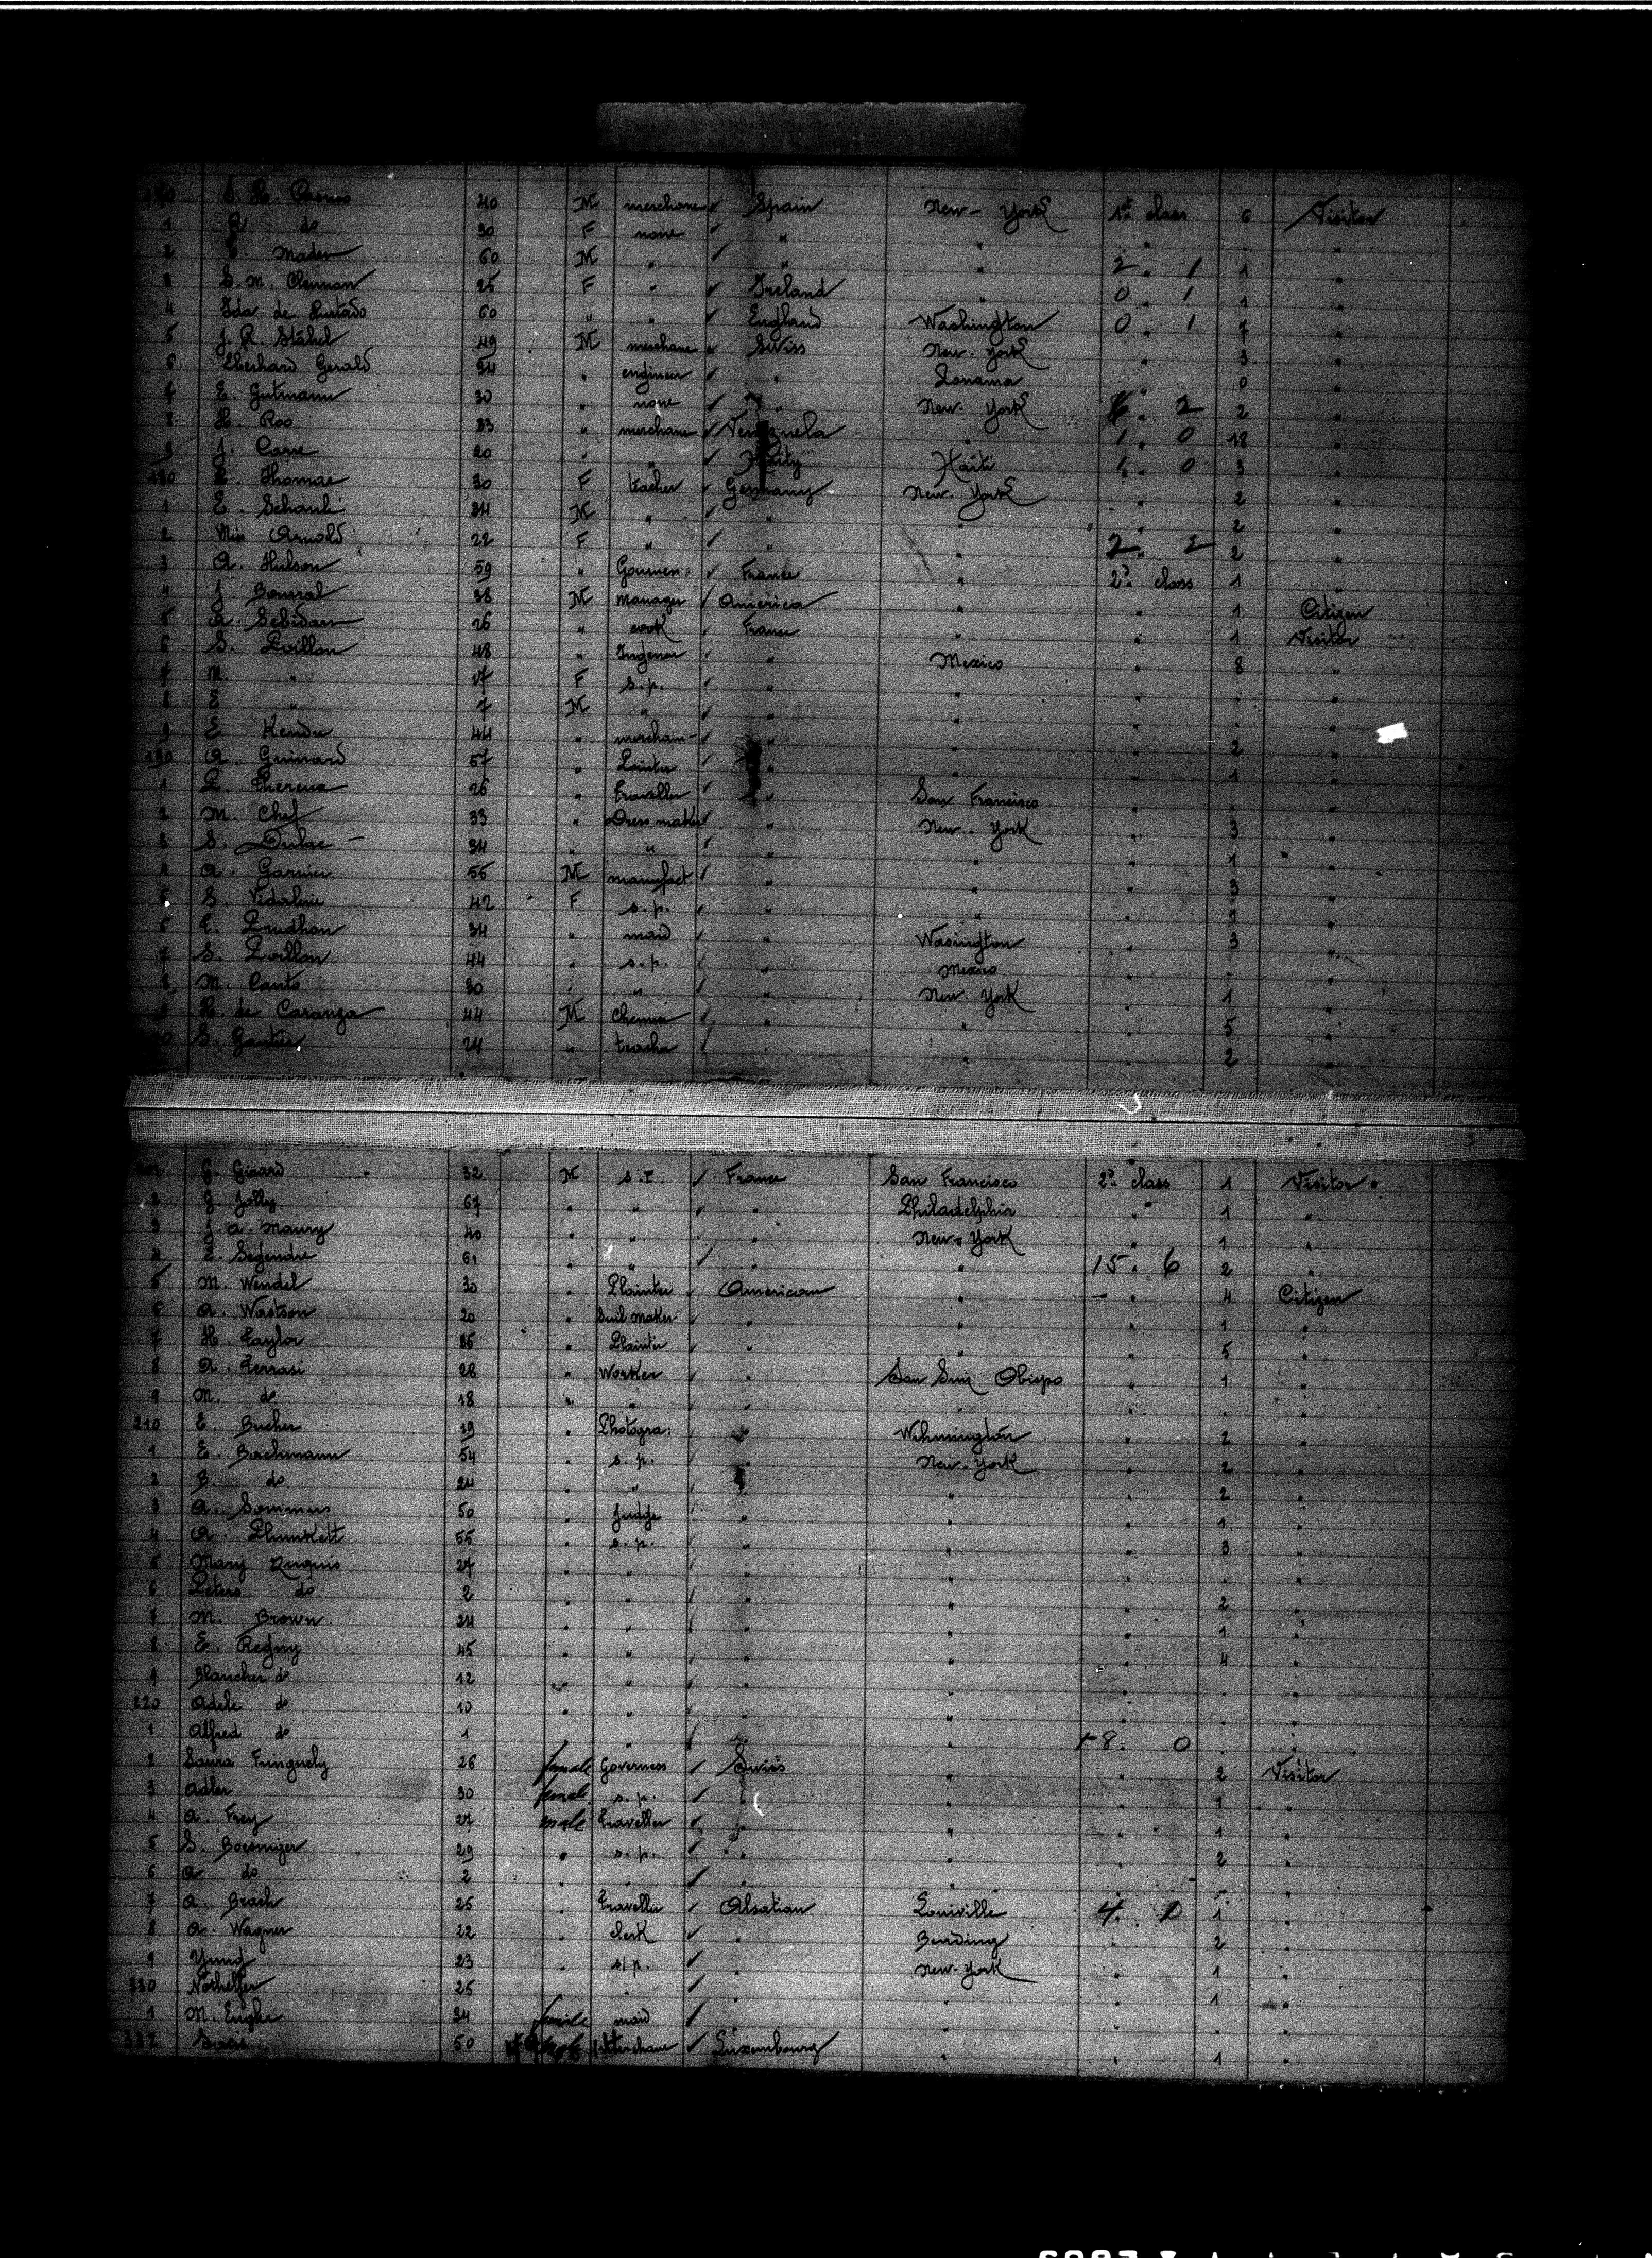 40 M merchant Spain New-York 1st class 6 Visitor
1 do 30 F none " " " "
2 Mader 60 M " " " 2. 1 1 "
3 S. M. Clennan 25 F " Ireland " 0 1 1 "
4 Ida de Hurtado 60 " " England Washington 0. 1 7 "
5 J. R. Stähel 49 M merchant Swiss New-York " 3 "
6 Eberhard Gerald 34 " engineer " " 0 "
7 E. Gutmann 30 " none " New-York 2 2 "
8 H. Roo 33 " merchant Venezuela " 1. 0 18 "
9 J. Carre 20 " " Haity Haïti 1. 0 3 "
180 E. Thomae 30 F teacher Germany New-York " 2 "
1 E. Schanli 34 M " " " " 2 "
2 Miss Arnold 22 F " " " 2. 2 2 "
3 A. Hulson 59 " Gouvern: France " 2d class 1 "
4 J. Bourral 38 M Manager America " " 1 Citizen
5 A. Sebidan 26 " cook France " " 1 Visitor
6 S. Poillon 48 " Ingener " Mexico " 8 "
7 M. " 17 F s.p. " " " " "
8 E " 7 M " " " " " "
9 E. 44 " merchant " " " 2 "
190 A. Guinard 57 " Painter " " " 1 "
1 26 " traveller " San Francisco " " "
2 M. Chef 33 " Dress maker " New-York " 3 "
3 S. Dulac 34 " " " " " 1 "
4 A. Garnier 55 M manufact " " " 3 "
5 S. Vidaline 42 F s.p. " " " 1 "
6 E. Prudhon 34 " maid " Wasington " 3 "
7 S. Poillon 44 " s.p. " Mexico " " "
8 M. Canto 30 " " " New-York " 1 "
9 H. de Caranza 44 M Chemis " " 5 "
S. Gautier 24 " teacher " " 2 "
G. Girard 32 M s.p. France San Francisco 2d class 1 Visitor
2 G. Jolly 67 " " " Philadelphia " 1 "
3 J. A. Maury 40 " " " New-York 1 "
4 E. Legendre 61 " " " " 15. 6 2 "
5 M. Wendel 30 " Plainter American " " 4 Citizen
6 A. Wastson 20 " maker " " " 1 "
7 H. Taylor 35 " Plainter " " " 5 "
8 A. Terrasi 28 " Worker " San Luiz Obispo " 1 "
9 M. do 18 " " " " " "
210 E. Bucher 19 " Photogra: " Wilmington " 2 "
1 E. Bachmann 54 " s.p. " New-York " 2 "
2 B. do 24 " " " " 2 "
3 A. Sommers 50 " Judge " " " 1 "
4 A. Plunkett 55 " s.p. " " " 3 "
5 Mary 27 " " " " " "
6 Peters do 2 " " " " " 2 "
7 M. Brown 24 " " " " " 1 "
8 E. Regny 45 " " " " " 4 "
9 Blanche do 12 " " " " " " "
220 Adele do 10 " " " " " "
1 Alfred do 1 " " " 18. 0 " "
2 Laura Finguely 26 female Governess Swiss " " 2 Visitor
3 Adler 30 female s.p. " " " 1 "
4 A. Frey 27 male traveller " " " 1 "
5 S. Boesniger 29 " s.p. " " " 2 "
6 A do 2 " " " " " "
7 A. Brach 25 " traveller Alsatian Louiville 4. 0 1 "
8 A. Wagner 22 " clerk " " 2 "
9 Yung 23 " s.p. " New-York " 1 "
330 Nothelfer 25 " " " " 1 "
1 M. Engler 34 female maid " " " " "
332 50 merchant Luxembourg " " 1 "